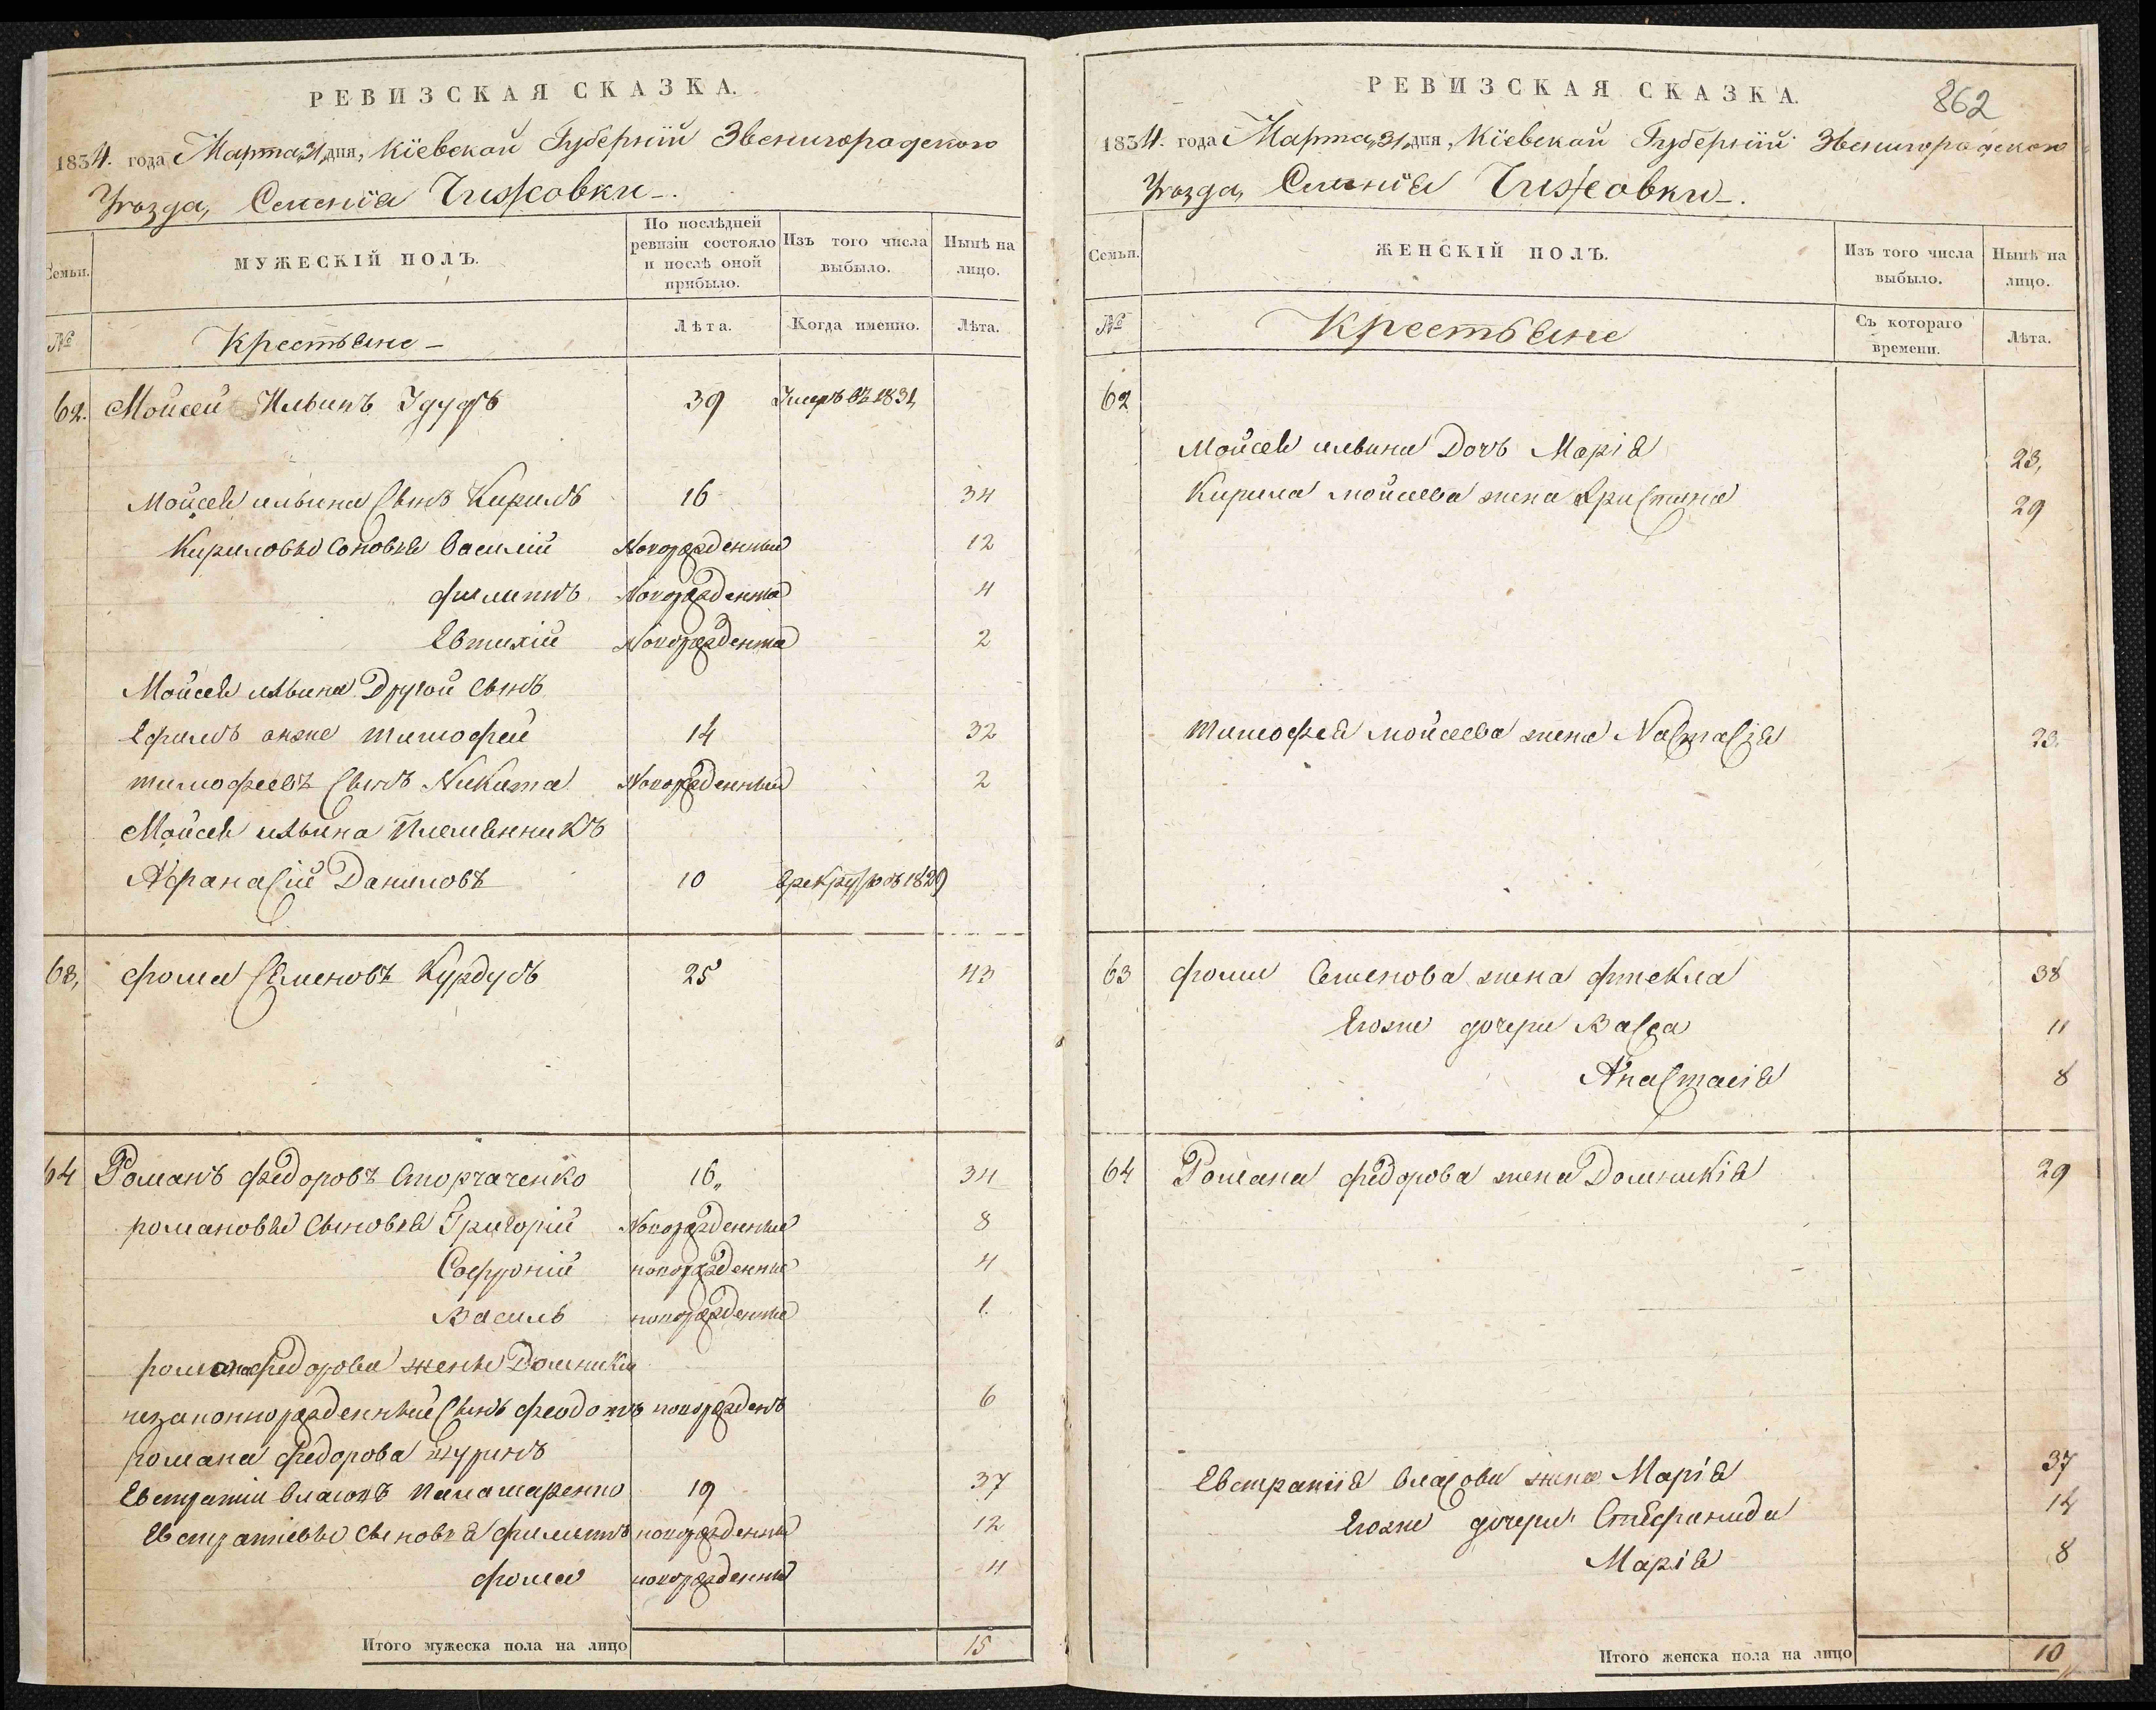 РЕВИЗСКАЯ СКАЗКА.
1834. года Марта 31, дня, Кіевской Губерніи Звенигородского
Уѣзда, Селенія Чижовки.
Семьи.
МУЖЕСКІЙ ПОЛЪ.
По послѣдней ревизіи состояло и послѣ оной прибыло.
Изъ того числа выбыло.
Нынѣ на лицо.
№
Крестьяне
Лѣта.
Когда именно.
Лѣта.
62. Мойсей Ильинъ 39 Умеръ въ 1831
Мойсея ильина Сынъ Кирилъ 16 34
Кириловы Соновья Василій Новорожденный 12
филипъ Новорожденны 4
Евтихій Новорожденны 2
Мойсея ильина Другой Сынъ
Ефимъ онже тимофей 14 32
тимофеевъ Сынъ Никита Новорожденный 2
Мойсея ильина Племянникъ
Афанасій Даниловъ 10 Врекруты въ 1829
63, фома Семеновъ Курдубъ 25 43
64 Романъ федоровъ Сторчаченко 16,, 34
романовы Сыновья Григорій Новорожденные 8
Софроній новорожденные 4
Василь новорожденные 1.
романа федорова жены Домники
незаконнорожденный Сынъ феодотъ новорожденъ 6
романа федорова шуринъ
Евстратій Власовъ Паламаренко 19 37
Евстратіевы Сыновья филипъ новорожденны 12
фома новорожденны 4
Итого мужеска пола на лицо 15
РЕВИЗСКАЯ СКАЗКА.
862
1834. года Марта 31, дня, Кіевской Губерніи Звенигородского
Уѣзда, Селенія Чижовки.
Семьи.
ЖЕНСКІЙ ПОЛЪ.
Изъ того числа выбыло.
Нынѣ на лицо.
№
Крестьяне
Съ котораго времени.
Лѣта.
62
Мойсея ильина Дочь Марія 23,
Кирила мойсеева жена Христина 29
тимофея мойсеева жена Настасія 23.
63 фомы Семенова жена фтекла 38
Егоже дочери Васса 11
Анастасія 8
64 Романа федорова жена Домникія 29
Евстратія Власова жена Марія 37
Егоже дочери Стефанида 14
Марія 8
Итого женска пола на лицо 10